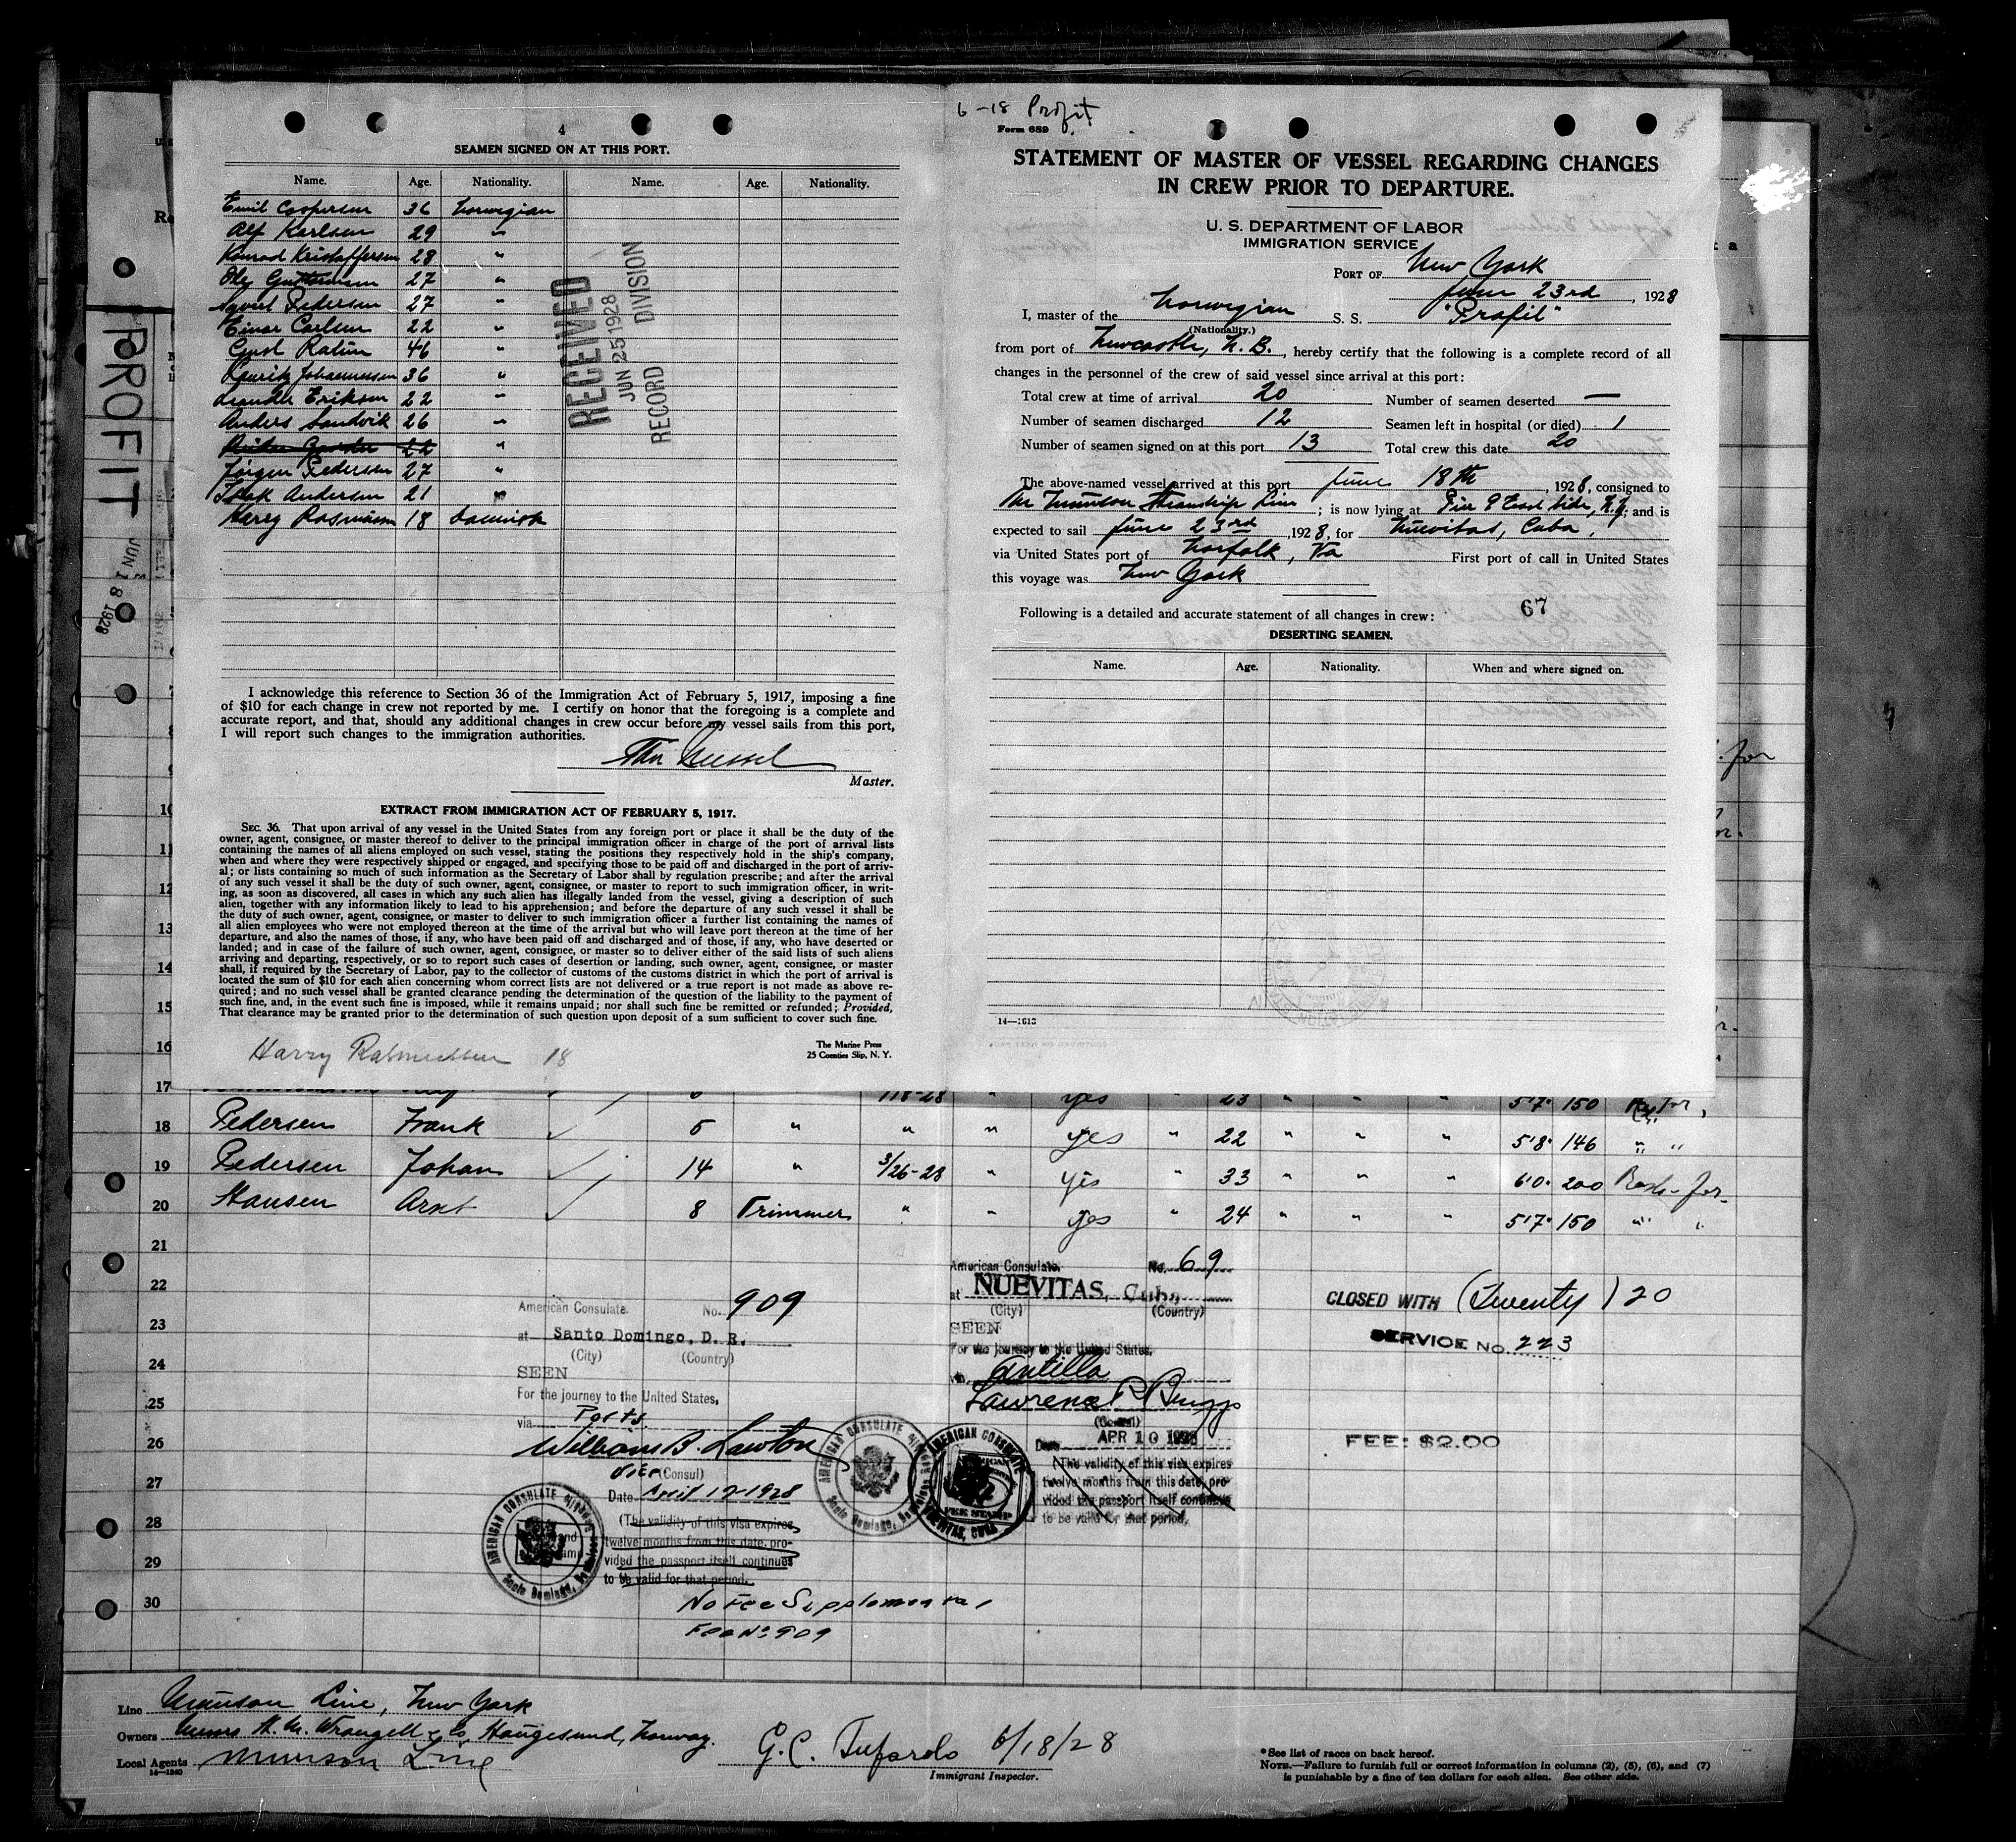 4
SEAMEN SIGNED ON AT THIS PORT.
Name. Age. Nationality. Name. Age. Nationality.
Emil Caspersen 36 Norwegian
Alf Karlsen 29 "
Konrad Kristoffersen 28 "
27 "
Pedersen 27 "
Einar Carlsen 22 "
46 "
Lauritz Johannessen 36 "
Leander Erikson 22 "
Anders Sandvik 26 "
22 "
Jörgen Pedersen 27 "
Andersen 21 "
Harry Rasmussen 18 Danish
RECEIVED
JUN 25 1928
RECORD DIVISION
I acknowledge this reference to Section 36 of the Immigration Act of February 5, 1917, imposing a fine
of $10 for each change in crew not reported by me. I certify on honor that the foregoing is a complete and
accurate report, and that, should any additional changes in crew occur before my vessel sails from this port,
I will report such changes to the immigration authorities.
Master.
EXTRACT FROM IMMIGRATION ACT OF FEBRUARY 5, 1917.
SEC. 36. That upon arrival of any vessel in the United States from any foreign port or place it shall be the duty of the
owner, agent, consignee, or master thereof to deliver to the principal immigration officer in charge of the port of arrival lists
containing the names of all aliens employed on such vessel, stating the positions they respectively hold in the ship's company,
when and where they were respectively shipped or engaged, and specifying those to be paid off and discharged in the port of arriv-
al; or lists containing so much of such information as the Secretary of Labor shall by regulation prescribe; and after the arrival
of any such vessel it shall be the duty of such owner, agent, consignee, or master to report to such immigration officer, in writ-
ing, as soon as discovered, all cases in which any such alien has illegally landed from the vessel, giving a description of such
alien, together with any information likely to lead to his apprehension; and before the departure of any such vessel it shall be
the duty of such owner, agent, consignee, or master to deliver to such immigration officer a further list containing the names of
all alien employees who were not employed thereon at the time of the arrival but who will leave port thereon at the time of her
departure, and also the names of those, if any, who have been paid off and discharged and of those, if any, who have deserted or
landed; and in case of the failure of such owner, agent, consignee, or master so to deliver either of the said lists of such aliens
arriving and departing, respectively, or so to report such cases of desertion or landing, such owner, agent, consignee, or master
shall, if required by the Secretary of Labor, pay to the collector of customs of the customs district in which the port of arrival is
located the sum of $10 for each alien concerning whom correct lists are not delivered or a true report is not made as above re-
quired; and no such vessel shall be granted clearance pending the determination of the question of the liability to the payment of
such fine, and, in the event such fine is imposed, while it remains unpaid; nor shall such fine be remitted or refunded; Provided,
That clearance may be granted prior to the determination of such question upon deposit of a sum sufficient to cover such fine.
Harry Rasmussen 18
The Marine Press
25 Coenties Slip, N. Y.
6-18 Profit
Form 689
STATEMENT OF MASTER OF VESSEL REGARDING CHANGES
IN CREW PRIOR TO DEPARTURE.
U. S. DEPARTMENT OF LABOR
IMMIGRATION SERVICE
PORT OF New York
June 23rd, 1928
I, master of the Norwegian S. S. "Profit"
(Nationality.)
from port of Newcastle, N.B., hereby certify that the following is a complete record of all
changes in the personnel of the crew of said vessel since arrival at this port:
Total crew at time of arrival 20 Number of seamen deserted —
Number of seamen discharged 12 Seamen left in hospital (or died) 1
Number of seamen signed on at this port 13 Total crew this date 20
The above-named vessel arrived at this port June 18th, 1928, consigned to
The Munson Steamship Line; is now lying at Pier 9 East Side, N.Y. and is
expected to sail June 23rd, 1928, for Nuevitas, Cuba,
via United States port of Norfolk, Va First port of call in United States
this voyage was New York
Following is a detailed and accurate statement of all changes in crew: 67
DESERTING SEAMEN.
Name. Age. Nationality. When and where signed on.
PROFIT
JUN 18 1928
10
11
12
13
14
15
16
17 118-28 yes 23 " " " 5'7" 150
18 Pedersen Frank 5 " " " yes " 22 " " " 5'8" 146 " "
19 Pedersen Johan 14 " 3/26-28 " yes " 33 " " " 6'0" 200
20 Hansen Arnt 8 Trimmer " " yes " 24 " " " 5'7" 150 " "
21
22
23
24
25
26
27
28
29
30
American Consulate. No. 909
at Santo Domingo, D. R.
(City) (Country)
SEEN
For the journey to the United States,
via Ports.
William B. Lawton
Vice (Consul)
Date April 17-1928
(The validity of this visa expires
twelve months from this date, pro-
vided the passport itself continues
to be valid for that period.
No Fee Supplemental
Fee No 909
AMERICAN CONSULATE
Santo Domingo
American Consulate. No. 69
at NUEVITAS, Cuba
(City) (Country)
SEEN
For the journey to the United States,
via Antilla
Lawrence P. Briggs
(Consul)
Date APR 10 1928
(The validity of this visa expires
twelve months from this date, pro-
vided the passport itself continues
to be valid for that period.
AMERICAN CONSULATE
NUEVITAS, CUBA
FEE STAMP
CLOSED WITH (Twenty) 20
SERVICE NO. 223
FEE: $2.00
Line Munson Line, New York
Owners Messrs H. M. Wrangell & Co, Haugesund, Norway.
Local Agents Munson Line
14—1240
G.C. Tufarolo 6/18/28
Immigrant Inspector.
*See list of races on back hereof.
NOTE.—Failure to furnish full or correct information in columns (2), (5), (6), and (7)
is punishable by a fine of ten dollars for each alien. See other side.